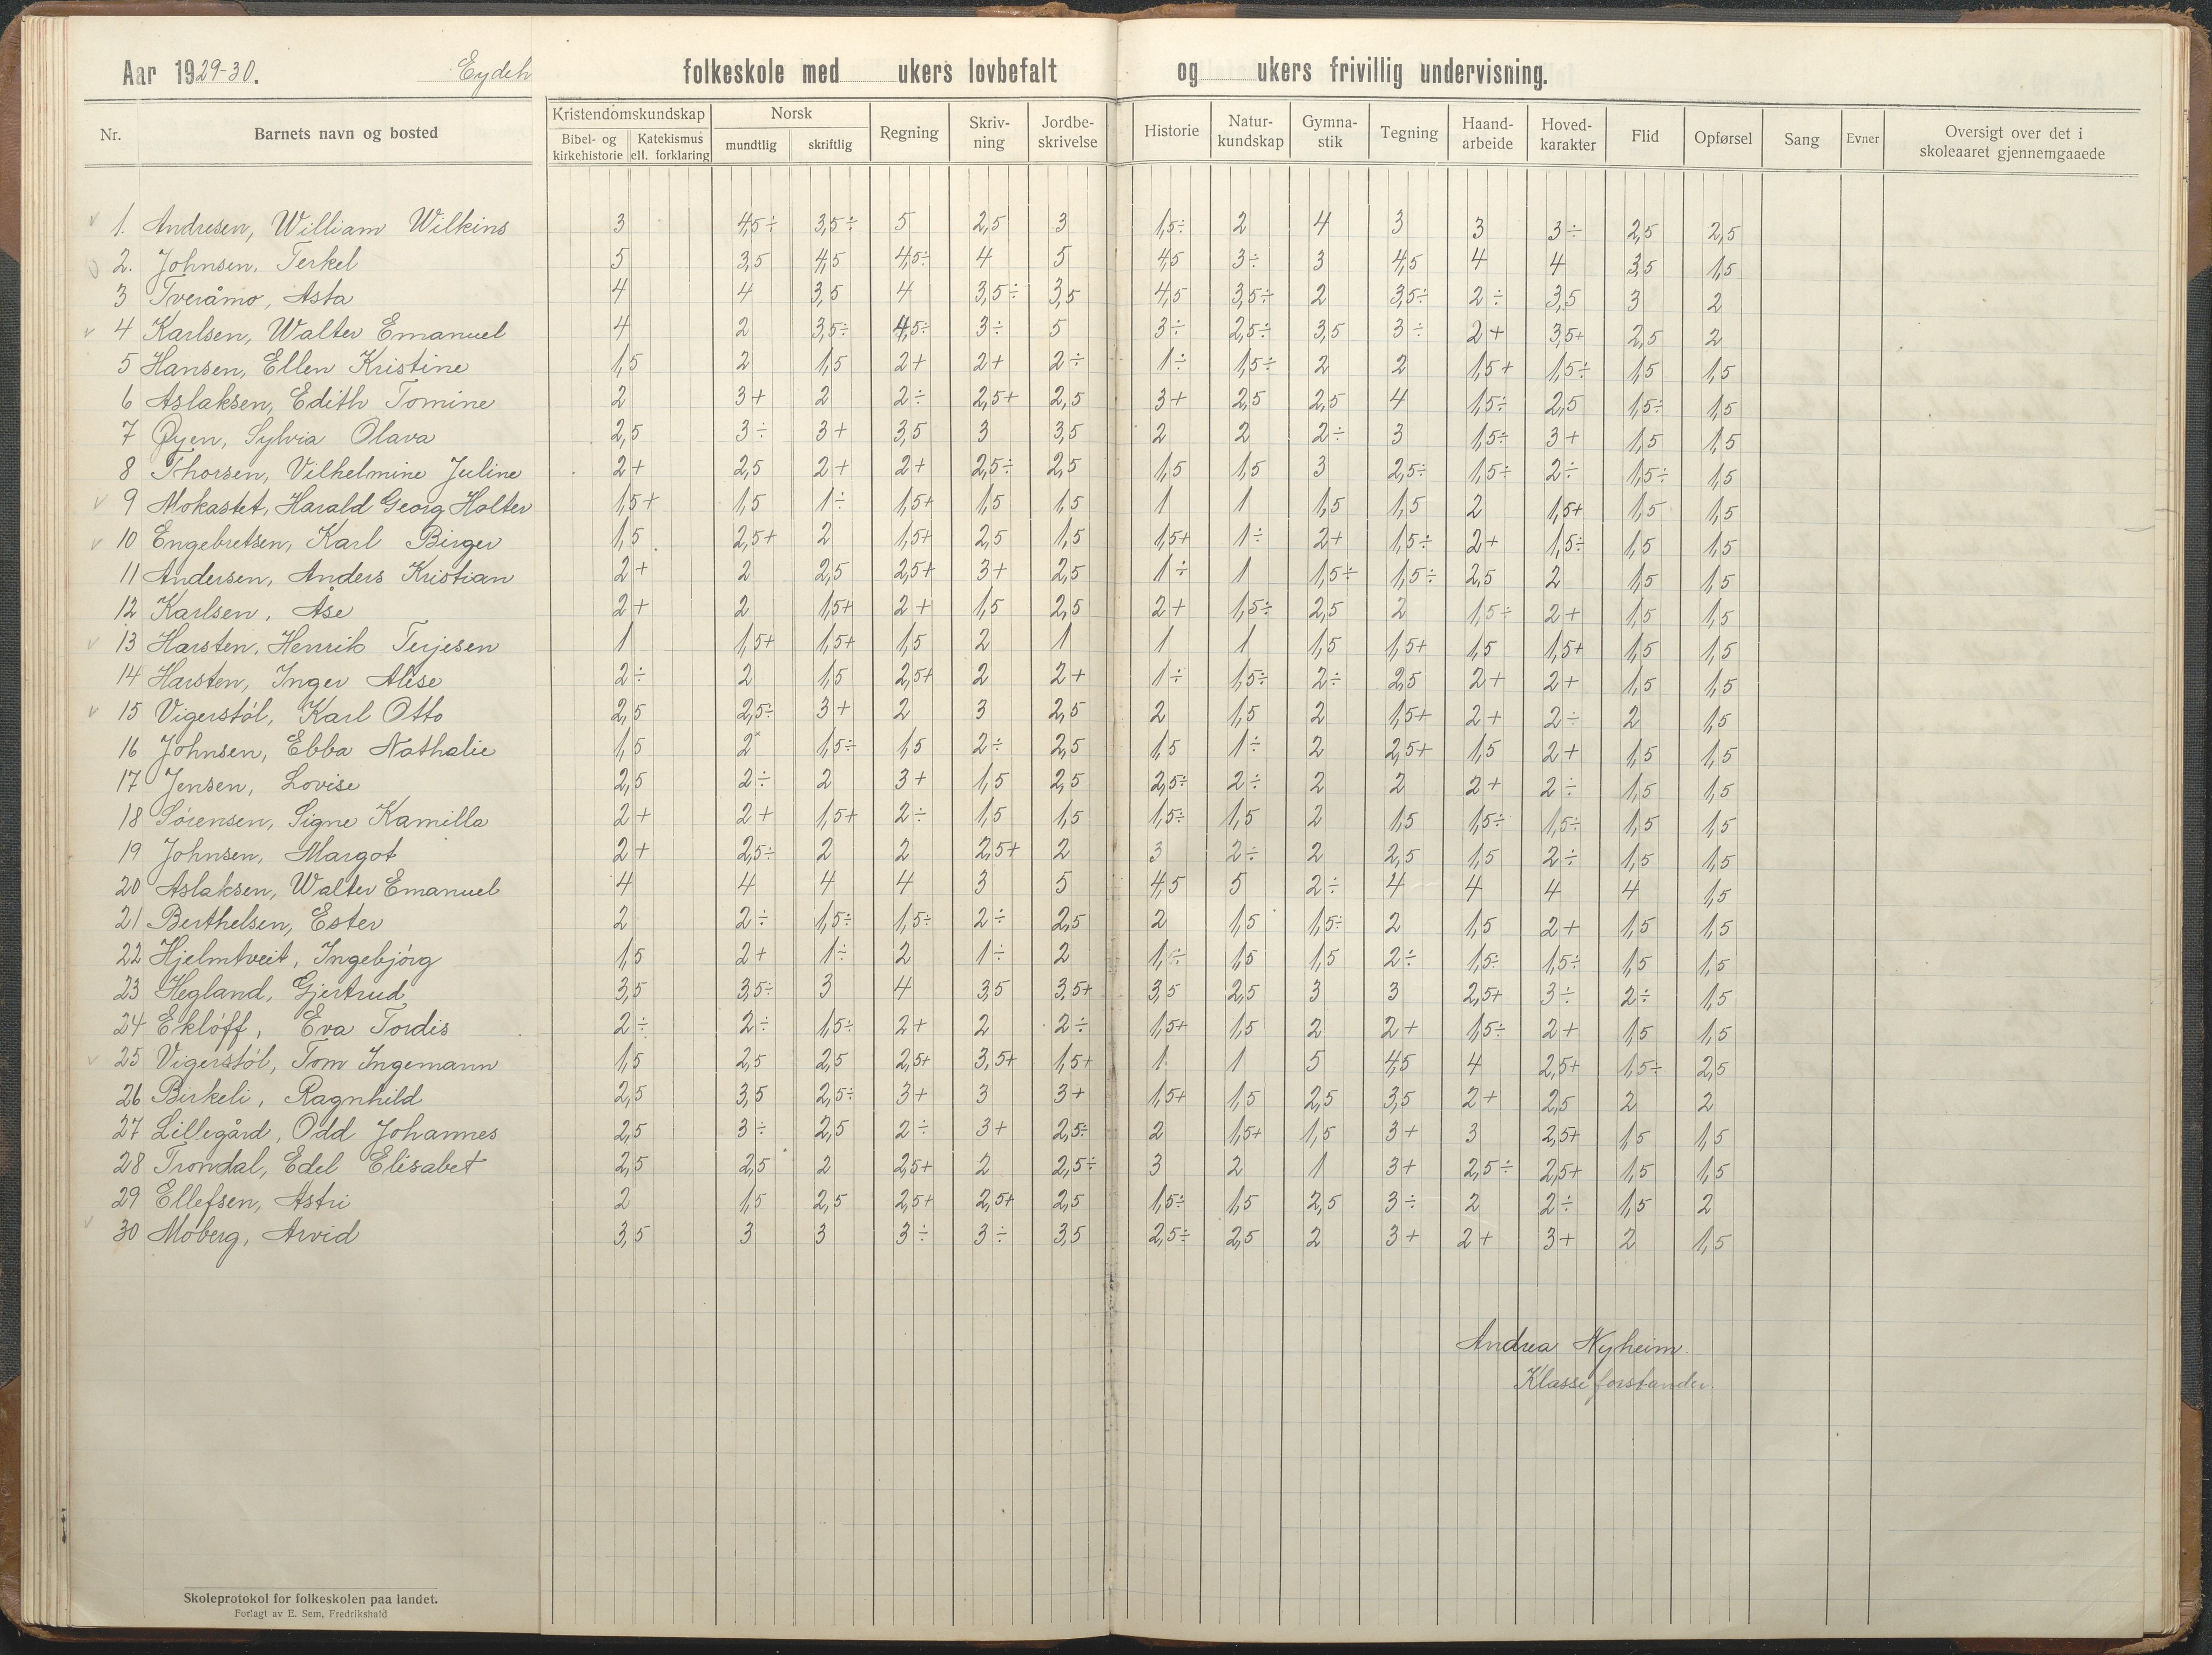 Aar 1929-30. Eydeh folkeskole med ukers lovbefalt og ukers frivillig undervisning.
Nr. Barnets navn og bosted Kristendomskundskap Bibel- og kirkehistorie Katekismus ell. forklaring Norsk mundtlig skriftlig Regning Skriv-ning Jordbe-skrivelse Historie Natur-kundskap Gymna-stik Tegning Haand-arbeide Hoved-karakter Flid Opførsel Sang Evner Oversigt over det i skoleaaret gjennemgaaede
1. Andresen, William Wilkins 3 4,5÷ 3,5÷ 5 2,5 3 1,5÷ 2 4 3 3 3÷ 2,5 2,5
2. Johnsen, Terkel 5 3,5 4,5 4,5÷ 4 5 4,5 3÷ 3 4,5 4 4 3,5 1,5
3 Tveråmo, Asta 4 4 3,5 4 3,5÷ 3,5 4,5 3,5÷ 2 3,5÷ 2÷ 3,5 3 2
4 Karlsen, Walter Emanuel 4 2 3,5÷ 4,5÷ 3÷ 5 3÷ 2,5÷ 3,5 3÷ 2+ 3,5+ 2,5 2
5 Hansen, Ellen Kristine 1,5 2 1,5 2+ 2+ 2÷ 1÷ 1,5÷ 2 2 1,5+ 1,5÷ 1,5 1,5
6 Aslaksen, Edith Tomine 2 3+ 2 2÷ 2,5+ 2,5 3+ 2,5 2,5 4 1,5÷ 2,5 1,5÷ 1,5
7 Øyen, Sylvia Olava 2,5 3÷ 3+ 3,5 3 3,5 2 2 2÷ 3 1,5÷ 3+ 1,5 1,5
8 Thorsen, Vilhelmine Juline 2+ 2,5 2+ 2+ 2,5÷ 2,5 1,5 1,5 3 2,5÷ 1,5÷ 2÷ 1,5÷ 1,5
9 Mokastet, Harald Georg Holter 1,5+ 1,5 1÷ 1,5+ 1,5 1,5 1 1 1,5 1,5 2 1,5+ 1,5 1,5
10 Engebretsen, Karl Birger 1,5 2,5+ 2 1,5+ 2,5 1,5 1,5+ 1÷ 2+ 1,5÷ 2+ 1,5÷ 1,5 1,5
11 Andersen, Anders Kristian 2+ 2 2,5 2,5+ 3+ 2,5 1÷ 1 1,5÷ 1,5÷ 2,5 2 1,5 1,5
12 Karlsen, Åse 2+ 2 1,5+ 2+ 1,5 2,5 2+ 1,5÷ 2,5 2 1,5÷ 2+ 1,5 1,5
13 Harsten, Henrik Terjesen 1 1,5+ 1,5+ 1,5 2 1 1 1 1,5 1,5+ 1,5 1,5+ 1,5 1,5
14 Harsten, Inger Alise 2÷ 2 1,5 2,5+ 2 2+ 1÷ 1,5÷ 2÷ 2,5 2+ 2+ 1,5 1,5
15 Vigerstøl, Karl Otto 2,5 2,5÷ 3+ 2 3 2,5 2 1,5 2 1,5+ 2+ 2÷ 2 1,5
16 Johnsen, Ebba Nathalie 1,5 2 1,5÷ 1,5 2÷ 2,5 1,5 1÷ 2 2,5+ 1,5 2+ 1,5 1,5
17 Jensen, Lovise 2,5 2÷ 2 3+ 1,5 2,5 2,5÷ 2÷ 2 2 2+ 2÷ 1,5 1,5
18 Sørensen, Signe Kamilla 2+ 2+ 1,5+ 2÷ 1,5 1,5 1,5÷ 1,5 2 1,5 1,5÷ 1,5÷ 1,5 1,5
19 Johnsen, Margot 2+ 2,5÷ 2 2 2,5+ 2 3 2÷ 2 2,5 1,5 2÷ 1,5 1,5
20 Aslaksen, Walter Emanuel 4 4 4 4 3 5 4,5 5 2÷ 4 4 4 4 1,5
21 Berthelsen, Ester 2 2÷ 1,5÷ 1,5÷ 2÷ 2,5 2 1,5 1,5÷ 2 1,5 2+ 1,5 1,5
22 Hjelmtveit, Ingebjørg 1,5 2+ 1÷ 2 1÷ 2 1,÷ 1,5 1,5 2÷ 1,5÷ 1,5÷ 1,5 1,5
23 Hegland, Gjertrud 3,5 3,5÷ 3 4 3,5 3,5+ 3,5 2,5 3 3 2,5+ 3÷ 2÷ 1,5
24 Ekløff, Eva Tordis 2÷ 2÷ 1,5÷ 2+ 2 2÷ 1,5+ 1,5 2 2+ 1,5÷ 2+ 1,5 1,5
25 Vigerstøl, Tom Ingemann 1,5 2,5 2,5 2,5+ 3,5+ 1,5+ 1 1 5 4,5 4 2,5+ 1,5÷ 2,5
26 Birkeli, Ragnhild 2,5 3,5 2,5÷ 3+ 3 3+ 1,5+ 1,5 2,5 3,5 2+ 2,5 2 2
27 Lillegård, Odd Johannes 2,5 3÷ 2,5 2÷ 3+ 2,5÷ 2 1,5+ 1,5 3+ 3 2,5+ 1,5 1,5
28 Trondal, Edel Elisabet 2,5 2,5 2 2,5+ 2 2,5÷ 3 2 1 3+ 2,5÷ 2,5+ 1,5 1,5
29 Ellefsen, Astri 2 1,5 2,5 2,5+ 2,5+ 2,5 1,5÷ 1,5 2,5 3÷ 2 2÷ 1,5 2
30 Møberg, Arvid 3,5 3 3 3÷ 3÷ 3,5 2,5÷ 2,5 2 3+ 2+ 3+ 2 1,5
Andrea Nyheim.
Klasseforstander.
Skoleprotokol for folkeskolen paa landet.
Forlagt av E. Sem, Fredrikshald